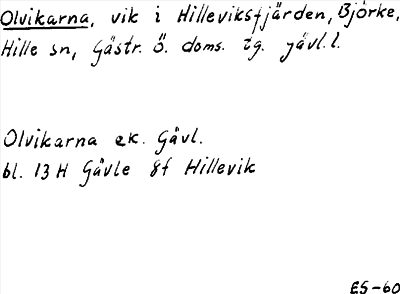 Olvikarna, vik i Hilleviksfjärden, Björke,
Hille sn, Gästr. Ö. doms. tg. Gävl.l.
Olvikarna ek. Gävl.
bl. 13 H Gävle 8f Hillevik
ES-60